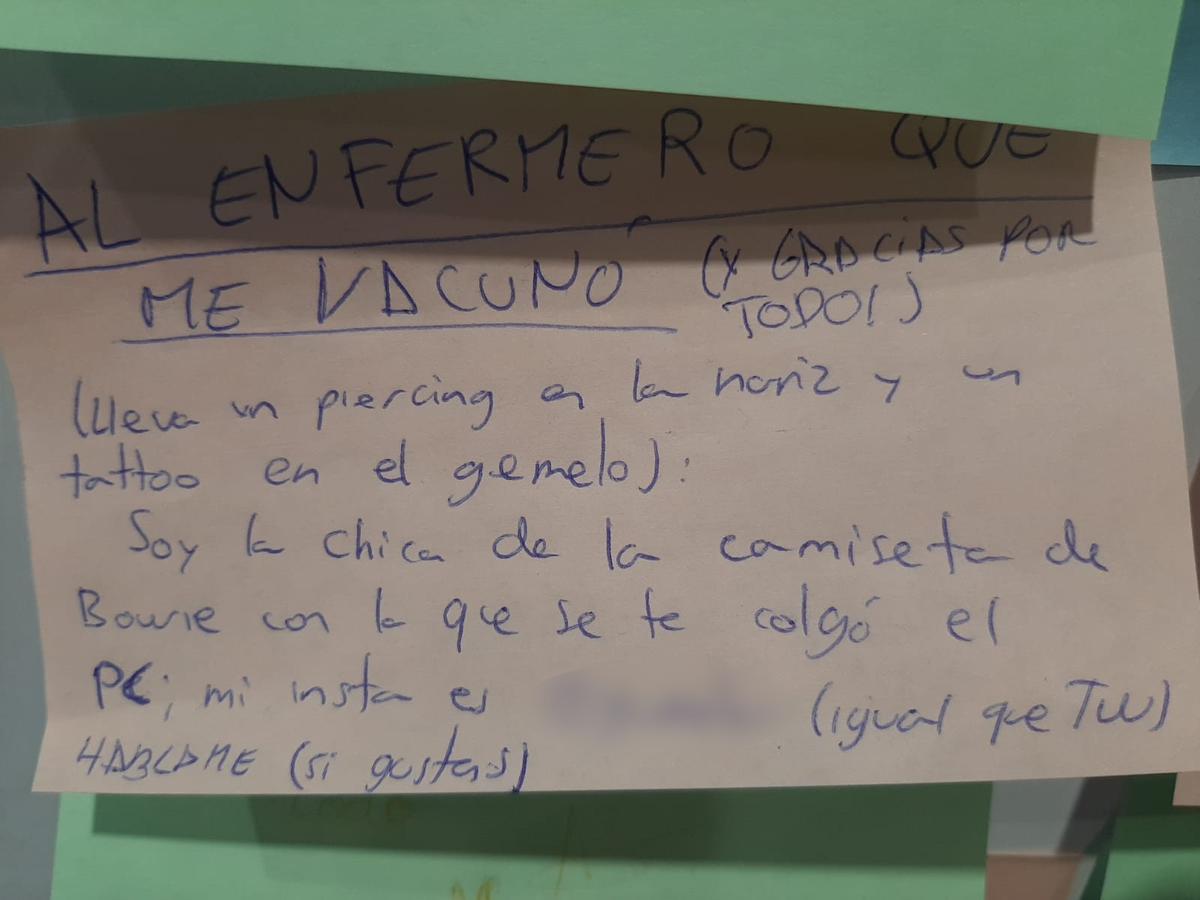 AL ENFERMERO QUE
ME VACUNÓ (X GRACIAS POR
TODO!)
(lleva un piercing en la nariz y un
tattoo en el gemelo):
Soy la chica de la camiseta de
Bowie con la que se te colgó el
PC; mi insta es (igual que TW)
HÁBLAME (si gustas)